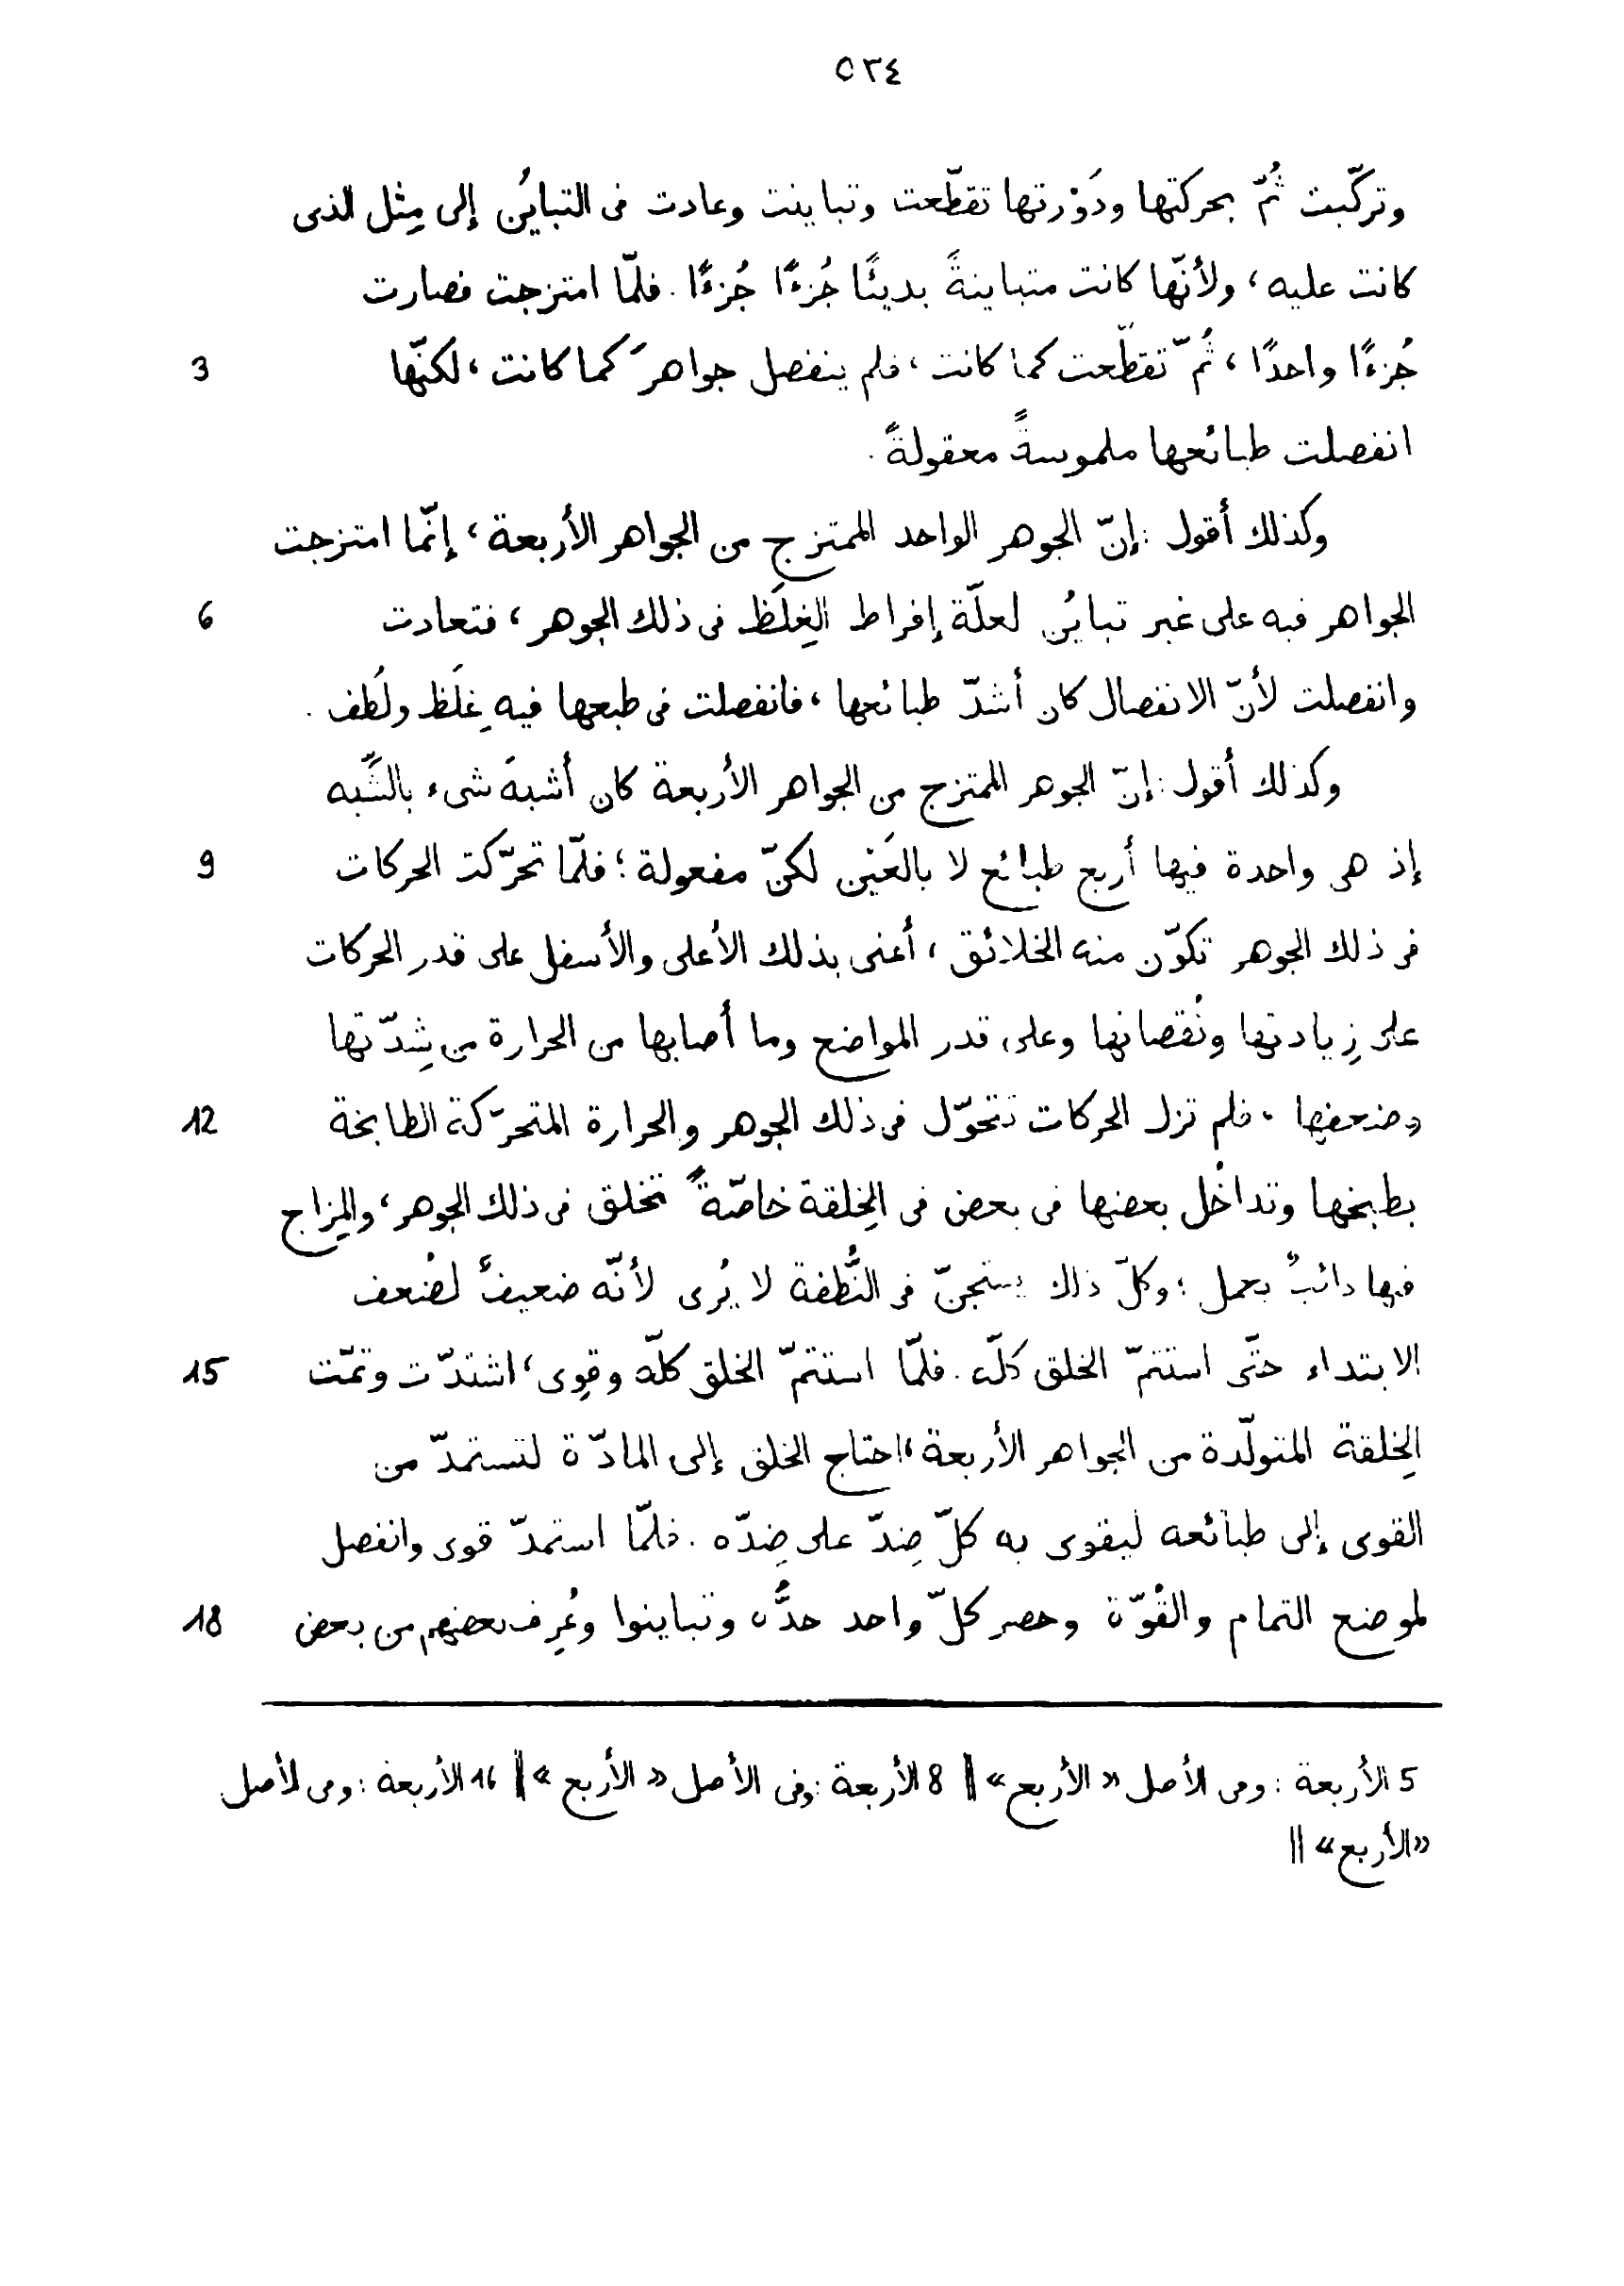 ٥٣٤
وتركّبت ثُمّ بحركتها ودَوْرتها تقطّعت وتباينت وعادت فى التبايُن إلى مِثل الذى
كانت عليه، ولأنّها كانت متباينةً بديئًا جُزءًا جُزءًا. فلمّا امتزجت فصارت
جُزءًا واحدًا، ثُمّ تقطّعت كما كانت، فلم ينفصل جواهرَ كما كانت، لكنّها
3
انفصلت طبائعها ملموسةً معقولةً.
وكذلك أقول: إنّ الجوهر الواحد الممتزج من الجواهر الأربعة، إنّما امتزجت
الجواهر فيه على غير تبايُن لعلّة إفراط الغِلَظ فى ذلك الجوهر، فتعادت
6
وانفصلت لأنّ الانفصال كان أشدّ طبائعها، فانفصلت فى طبعها فيه غِلَظ ولُطف.
وكذلك أقول: إنّ الجوهر الممتزج من الجواهر الأربعة كان أشبهَ شىء بالشَّبه
إذ هى واحدة فيها أربع طبائع لا بالعَيْن لكنّ مفعولة؛ فلمّا تحرّكت الحركات
9
فى ذلك الجوهر تكوّن منه الخلائق، أعنى بذلك الأعلى والأسفل على قدر الحركات
على زِيادتها ونُقصانها وعلى قدر المواضع وما أصابها من الحرارة من شِدّتها
وضعفها. فلم تزل الحركات تتحوّل فى ذلك الجوهر والحرارة المتحرّكة الطابخة
12
بطبخها وتداخُل بعضها فى بعض فى الخِلقة خاصّةً تخلق فى ذلك الجوهر، والمِزاج
فيها دائبٌ بعمل؛ وكلّ ذلك يستجنّ فى النُّطفة لا يُرى لأنّه ضعيفٌ لضُعف
الابتداء حتّى استتمّ الخلق كلّه. فلمّا استتمّ الخلق كلّه وقوِى، اشتدّت وتمّت
15
الخِلقة المتولّدة من الجواهر الأربعة، احتاج الخلق إلى المادّة لتستمدّ من
القوى إلى طبائعه ليقوى به كلّ ضِدّ على ضِدّه. فلمّا استمدّ قوى وانفصل
لموضع التمام والقُوّة وحصر كلّ واحد حدَّه وتباينوا وعُرِف بعضهم من بعض
18
5 الأربعة: وفى الأصل «الأربع» || 8 الأربعة: وفى الأصل «الأربع» || 16 الأربعة: وفى الأصل
«الأربع» ||